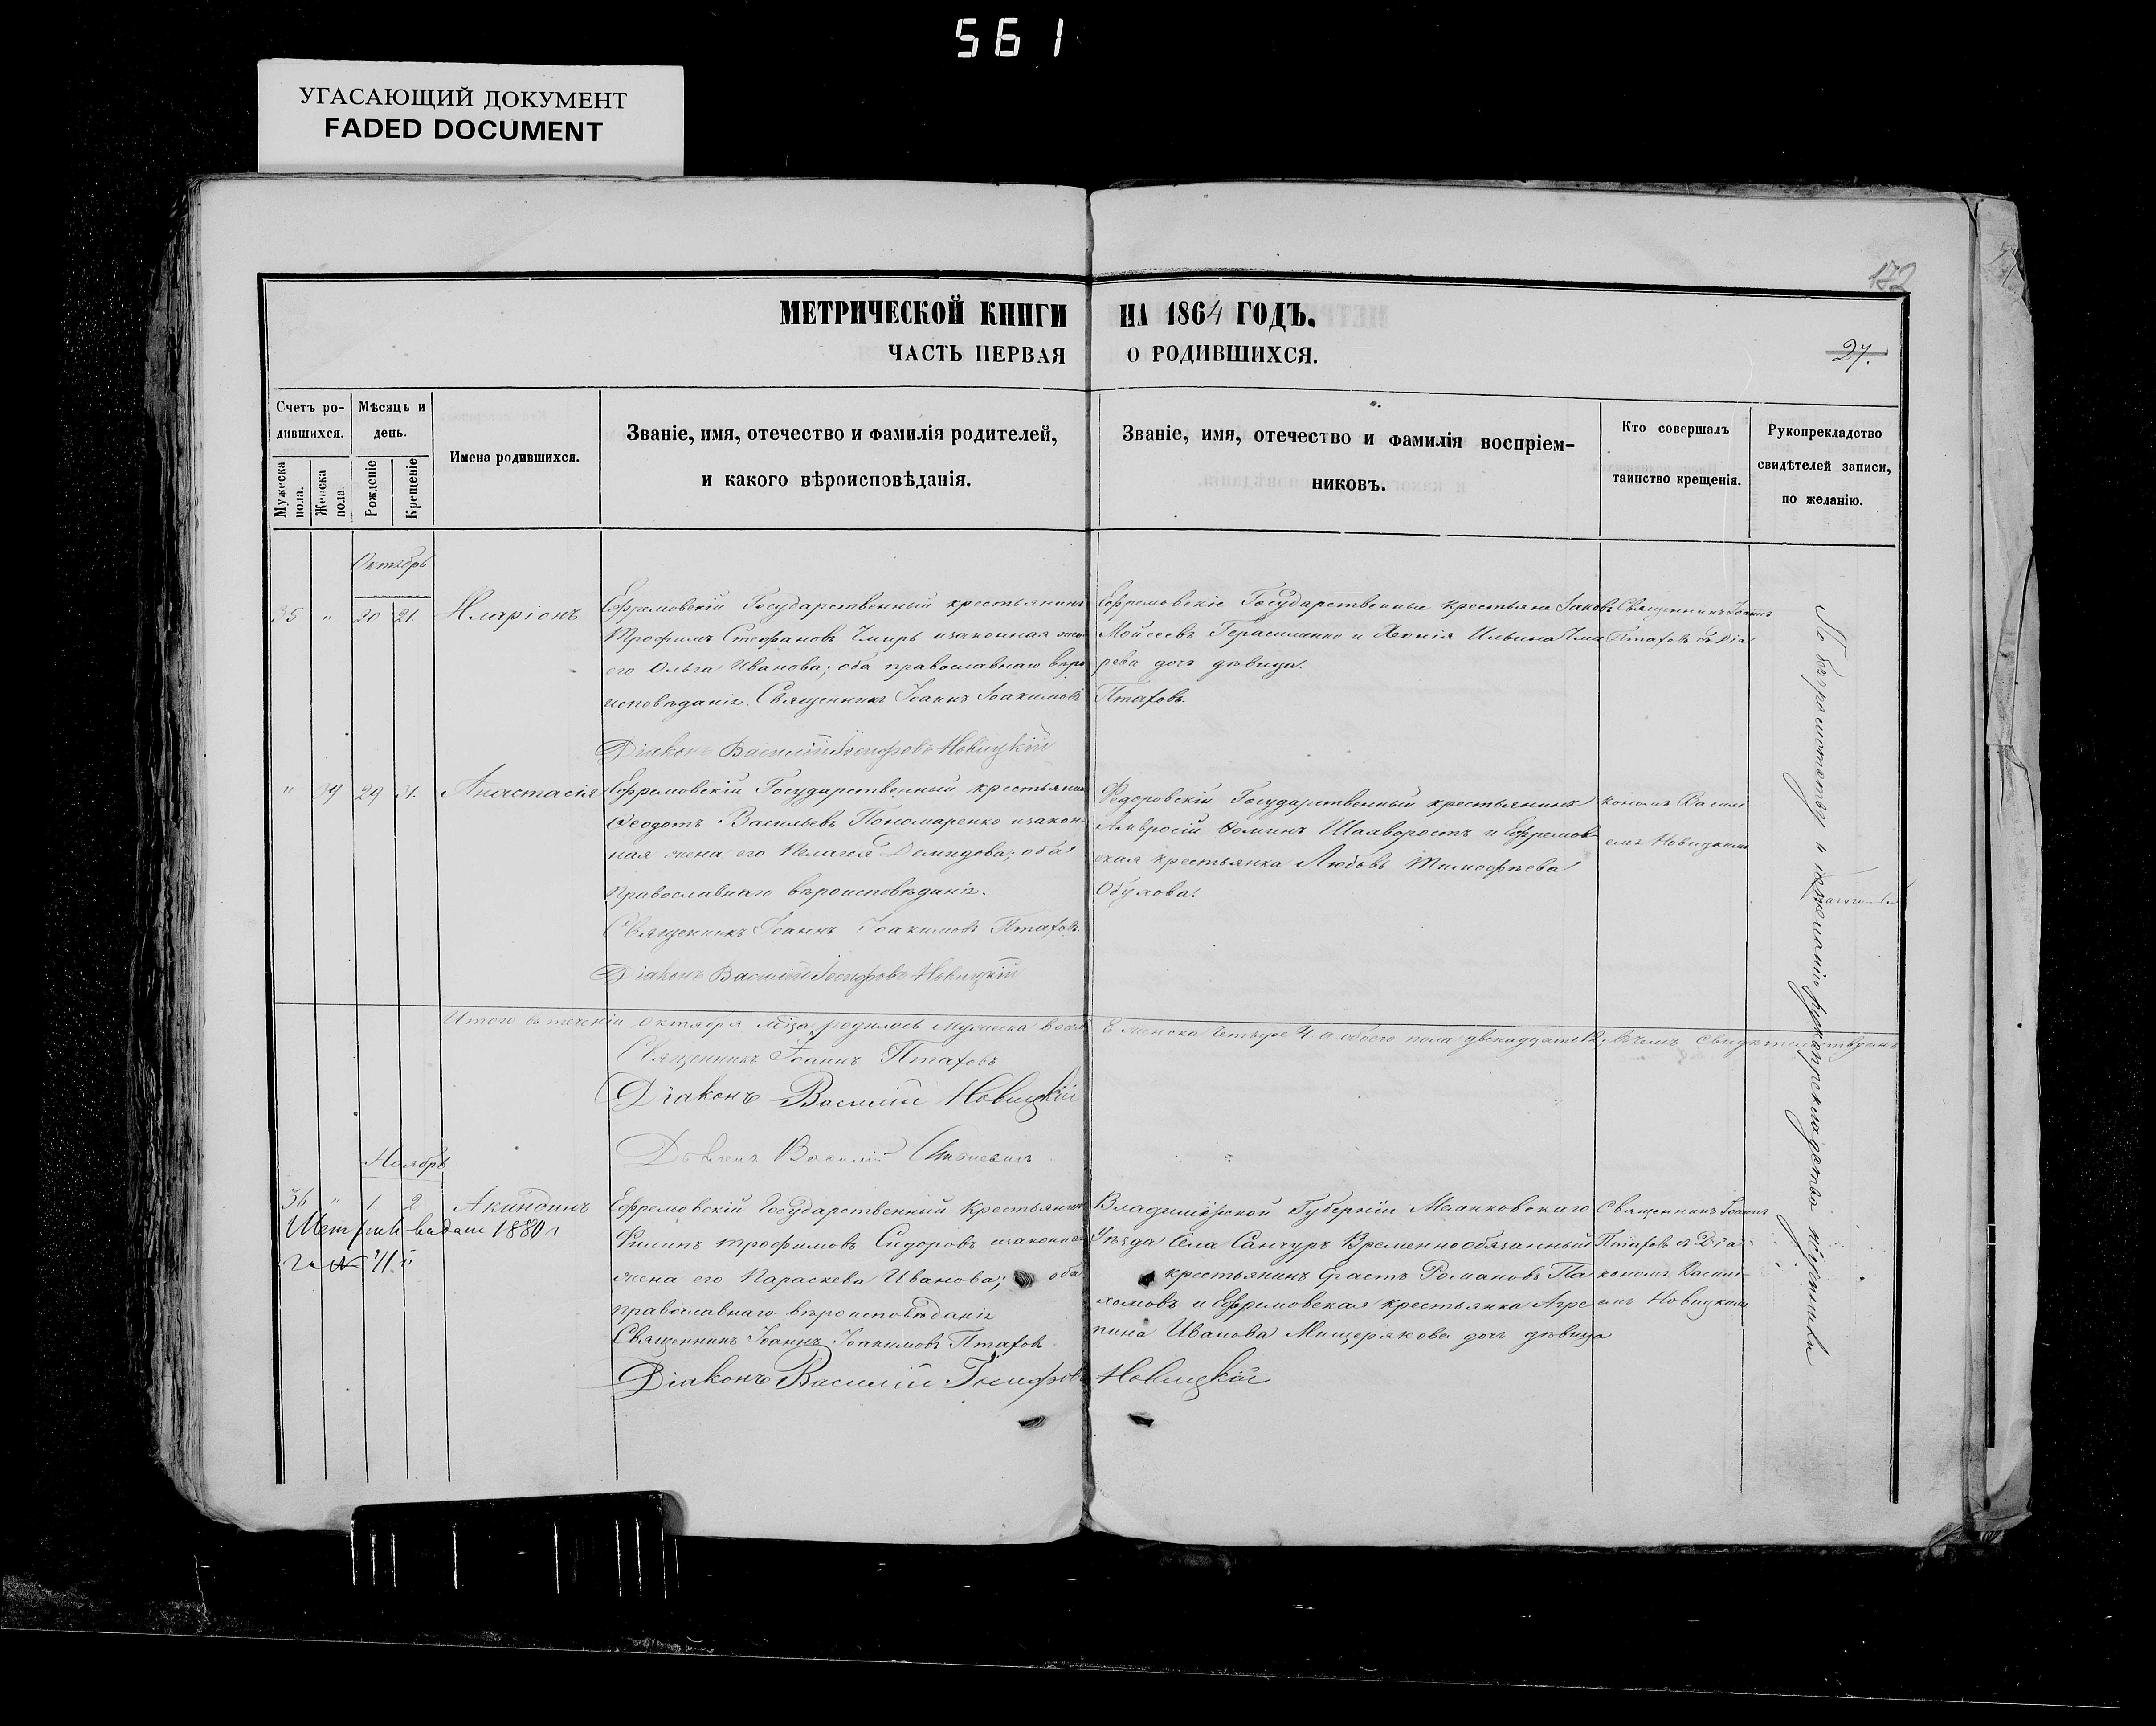 561
УГАСАЮЩИЙ ДОКУМЕНТ
FADED DOCUMENT
172
МЕТРИЧЕСКОЙ КНИГИ НА 1864 ГОДЪ.
ЧАСТЬ ПЕРВАЯ О РОДИВШИХСЯ.
27.
Счетъ ро-
дившихся.
Мужеска
пола.
Женска
пола.
Мѣсяць и
день.
Рожденіе
Крещеніе
Имена родившихся.
Званіе, имя, отечество и фамилія родителей,
и какого вѣроисповѣданія.
Званіе, имя, отечество и фамилія воспріем-
никовъ.
Кто совершалъ
таинство крещенія.
Рукопрекладство
свидѣтелей записи,
по желанію.
Октябрь
35 " 20 21. Иларіонъ
Ефремовскій Государственный крестьянинъ
Трофимъ Стефановъ Чмирь и законная жена
его Ольга Иванова; оба православнаго вѣро
исповѣданія. Священникъ Іоаннъ Іоакимовъ Птаховъ.
Діаконъ Василій Іосифовъ Новицкій
Ефремовскіе Государственные крестьяне Іаковъ
Моисеевъ Герасименко и Хеонія Ильина Чми
рева дочь дѣвица.
Священникъ Іоаннъ
Птаховъ съ Діа
" 29 31. Анастасія
Ефремовскій Государственный крестьянинъ
Ѳеодотъ Васильевъ Пономаренко и закон-
ная жена его Пелагея Демидова; оба
Православнаго вѣроисповѣданія.
Священникъ Іоаннъ Іоакимовъ Птаховъ.
Діаконъ Василій Іосифовъ Новицкій
Федоровскій Государственный крестьянинъ
Амвросій Ѳоминъ Шахворостъ и Ефремов
ская крестьянка Любовь Тимофѣева
Обухова.
кономъ Васили
емъ Новицкимъ
Итого въ теченіи октября мѣсца родилось мужеска восемь 8 женска четыре 4. а обоего пола двенадцать 12. въ чемъ свидѣтельствуемъ
Священникъ Іоаннъ Птаховъ
Діаконъ Василій Новицкій
Василій
Ноябрь
36 " 1. 2 Акиндинъ
выдана 1880 г
Ефремовскій Государственный Крестьянинъ
Филипъ Трофимовъ Сидоровъ и законная
жена его Параскева Иванова; оба
православнаго вѣроисповѣданія
Священникъ Іоаннъ Іоакимовъ Птаховъ
Діаконъ Василій Іосифовъ Новицкій
Владимірской Губерніи Меленковскаго
Уѣзда Села Санчуръ Временнообязанный
крестьянинъ Ерастъ Романовъ Па
хомовъ и Ефремовская крестьянка Агре
пина Иванова Мищерякова дочь дѣвица
Священникъ Іоаннъ
Птаховъ съ Діа
кономъ Васили-
емъ Новицкимъ
По безграмотству и нежеланію рукоприкладства не учинили